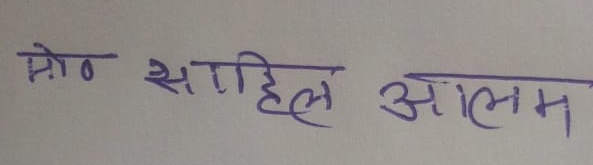 मो० साहिल आलम